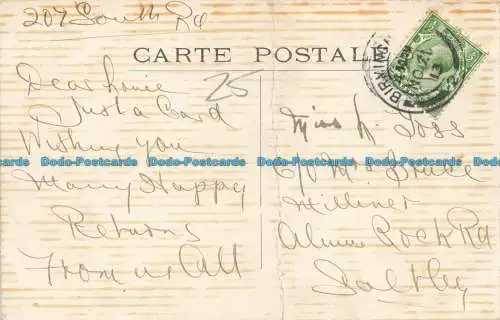 207 South Rd
CARTE POSTALE
25
Dear Louie
Just a Card
Wishing you
Many Happy
Returns
From us All
Miss L. Joss
C/o Mrs Bruce
Milliner
Alum Rock Rd
Saltley
BIRMING
Dodo-Postcards Dodo-Postcards Dodo-Postcards Dodo-Postcards Dodo-Postcards